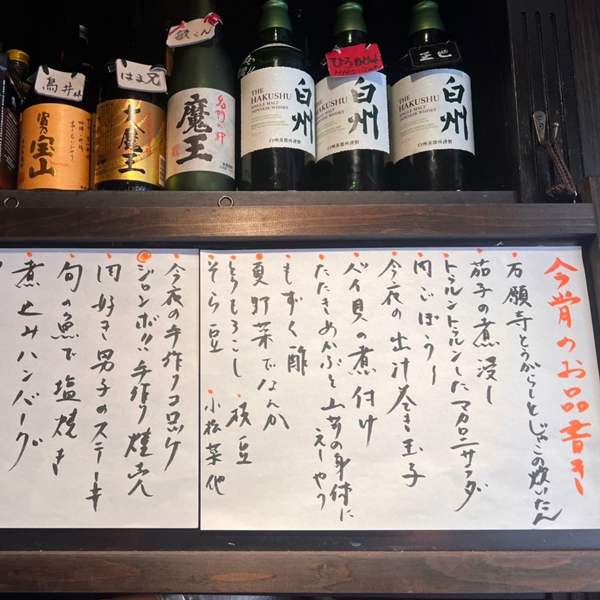 鳥井
はま兄
敏くん
正也
宝山
大魔王
名門の粋
魔王
THE
HAKUSHU
SINGLE MALT
JAPANESE WHISKY
白州
白州蒸溜所謹製
THE
HAKUSHU
SINGLE MALT
JAPANESE WHISKY
白州
白州蒸溜所謹製
THE
HAKUSHU
SINGLE MALT
JAPANESE WHISKY
白州
白州蒸溜所謹製
今宵のお品書き
万願寺とうがらしとじゃこの炊いたん
茄子の煮浸し
トゥルントゥルンしたマカロニサラダ
肉ごぼう
今夜の出汁巻き玉子
バイ貝の煮付け
たたきめかぶと山芋の身体にえーやつ
もずく酢
夏野菜でなんか
とうもろこし 枝豆
そら豆 小松菜他
今夜の手作りコロッケ
ジャンボ!!手作り焼売
肉好き男子のステーキ
旬の魚で塩焼き
煮込みハンバーグ